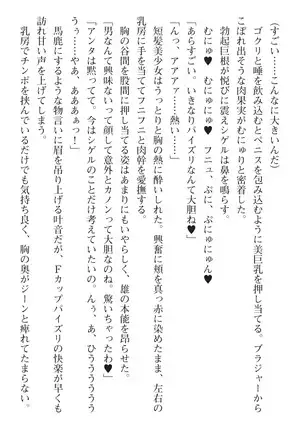 (すごい……こんなに大きいんだ)
ゴクリと唾を飲み込むとペニスを包み込むように美巨乳を押し当てる。ブラジャーから
こぼれ出そうな肉果実がむにゅりと密着した。
勃起巨根が悦びに震えシゲルは鼻を鳴らす。
むにゅ♥ むにゅ♥ フニュ、ぷに、ぷにゅにゅん♥
「あらすごい。いきなりパイズリなんて大胆ね♥」
「んっ、アアアァ……熱い……」
短髪美少女はうっとりと胸の熱に酔いしれた。興奮に頬を真っ赤に染めたまま、左右の
乳房に手を当ててフニフニと肉幹を愛撫する。
胸の谷間を股間に押し当てる姿はあまりにもいやらしく、雄の本能を昂らせた。
「男なんて興味ないって顔して意外とカノンって大胆なのね。驚いちゃったわ♥」
「アンタは黙ってて。今はシゲルのことだけ考えていたいの。んぅ、あ、ひうううううう
うっ……やあ、あああぁっ！」
馬鹿にするような物言いに眉を吊り上げる叶音だが、Ｆカップパイズリの快楽が早くも
訪れ甘い声を上げてしまう。
乳房でチンポを挟んでいるだけでも気持ち良く、胸の奥がジーンと痺れてたまらない。